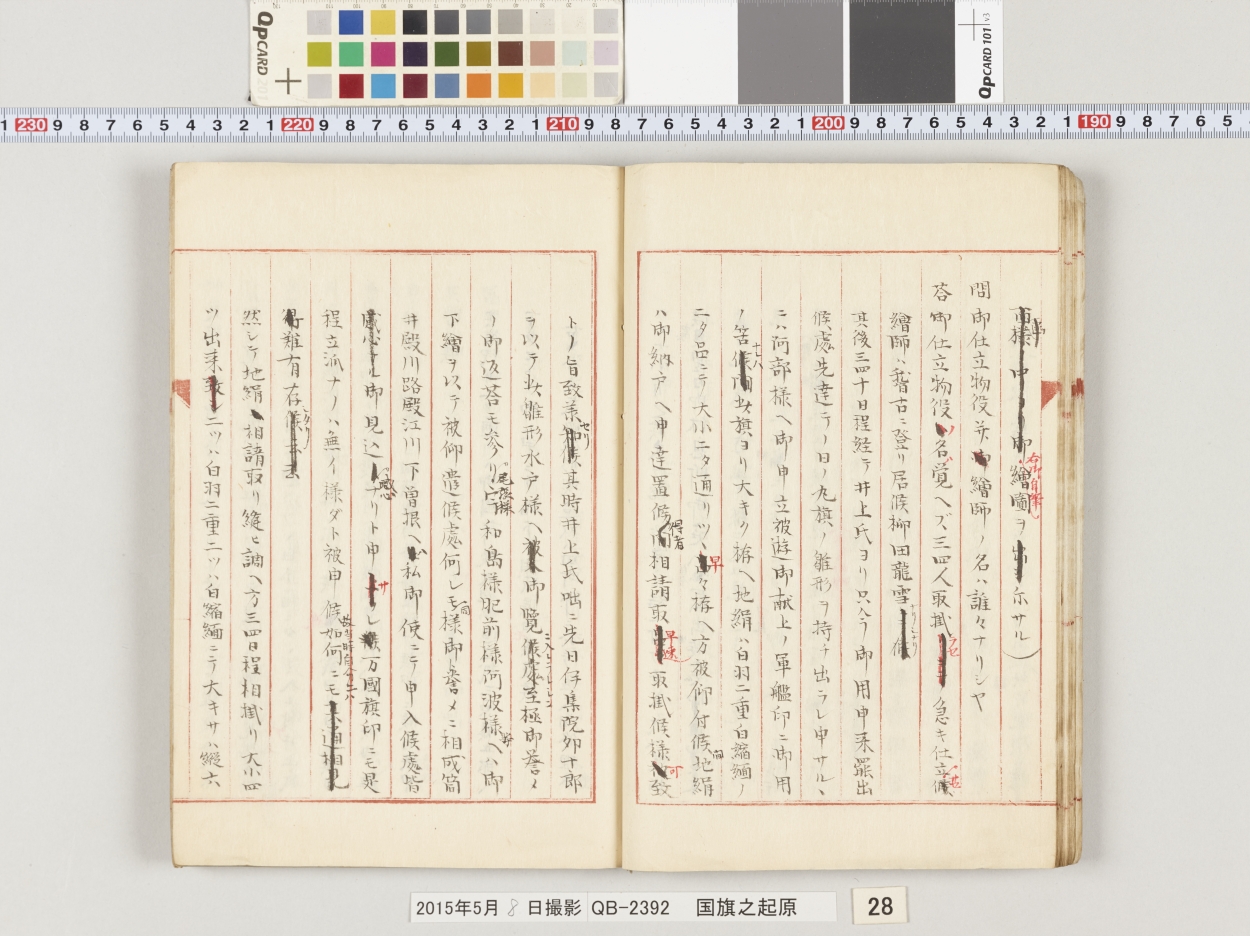 QPCARD 201
QPCARD 101 v3
1 230 9 8 7 6 5 4 3 2 1 220 9 8 7 6 5 4 3 2 1 210 9 8 7 6 5 4 3 2 1 200 9 8 7 6 5 4 3 2 1 190 9 8 7 6 5
御繪圖ヲ 示サル
問 御仕立物役并 繪師ノ名ハ誰々ナリシヤ
答 御仕立物役 名覚ヘズ三四人取掛 急キ仕立
繪師ハ稽古ニ登リ居候柳田龍雪
其後三四十日程経テ井上氏ヨリ只今御用申来罷出
候處先達テノ日ノ丸旗ノ雛形ヲ持チ出ラレ申サル、
ニハ阿部様ヘ御申立被遊御献上ノ軍艦印ニ御用
ノ筈 此旗ヨリ大キク拵ヘ地絹ハ白羽二重白縮緬ノ
ニタ品ニテ大小ニタ通リツヽ早々拵ヘ方被仰付候間地絹
ハ御納戸ヘ申達置候 得者 相請取 早速 取掛候様可致
トノ旨致承知 セリ 其時井上氏咄ニ先日伊集院卯十郎
ヲ以テ此雛形水戸様ヘ 御覽 至極御誉
ノ御返答モ参リ 尾張様 和島様肥前様阿波様ヘハ御
下繪ヲ以テ被仰遣候處何レモ 同 様御誉メニ相成筒
井殿川路殿江川下曽根ヘ 私御使ニテ申入候處皆
感心 御見込 ナリト申サレ 万國旗印ニモ是
程立派ナノハ無イ様ダト被申候如何ニモ
難有存
然シテ地絹 相請取リ縫ヒ調ヘ方三四日程相掛リ大小四
ツ出来 二ツハ白羽二重二ツハ白縮緬ニテ大キサハ縱六
2015年5月 8 日撮影 QB-2392 国旗之起原
28